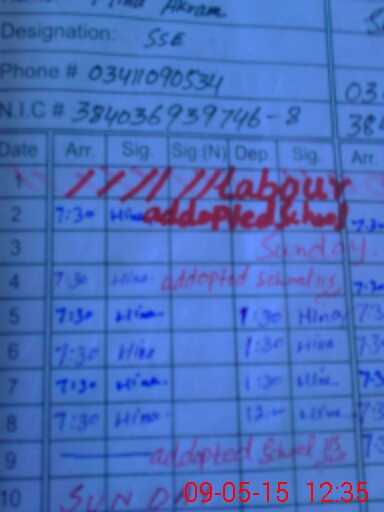 Hina Akram
Designation: SSE
Phone # 03411090534
N.I.C # 384036939746-8
Date Arr. Sig. Sig.(N) Dep. Sig. Arr.
1 Labour
2 7:30 Hina addopted School
3 Sunday.
4 7:30 Hina addopted School
5 7:30 Hina 1:30 Hina
6 7:30 Hina 1:30 Hina
7 7:30 Hina 1:30 Hina
8 7:30 Hina 12:00 Hina
9 addopted School
10 SUNDA
09-05-15 12:35